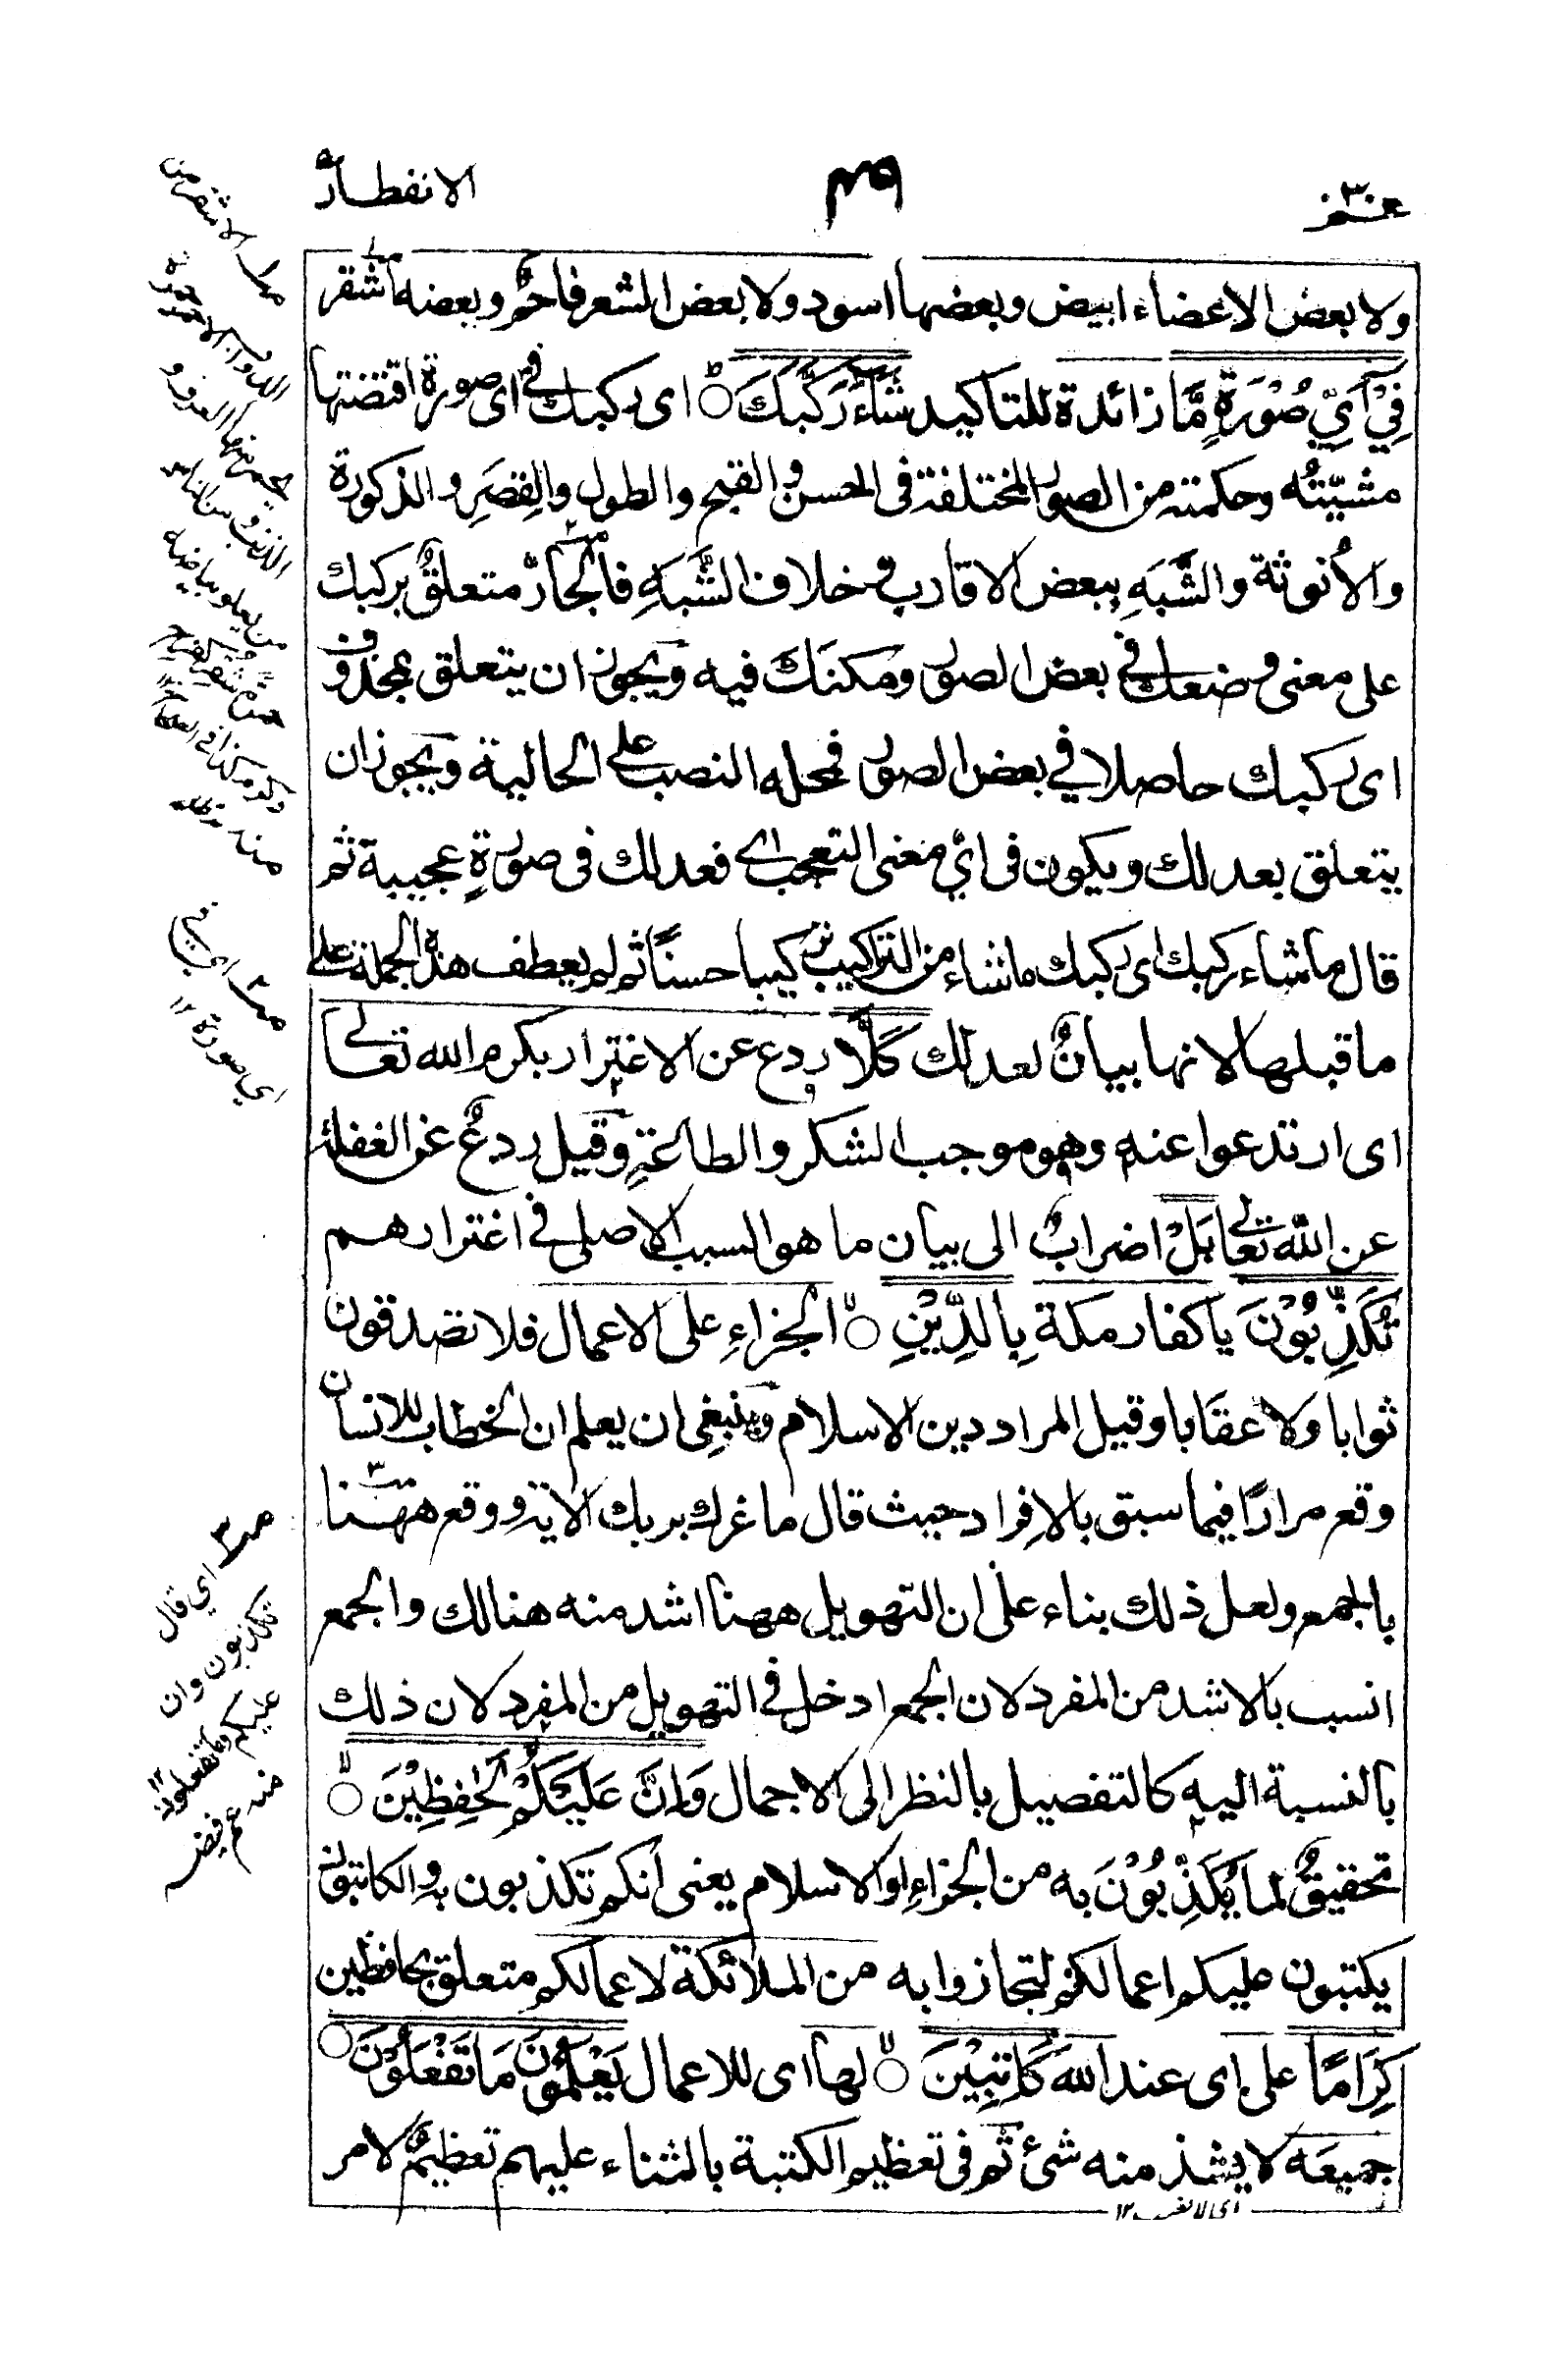 الانفطار
ولا بعض الاعضاء ابيض وبعضها اسود ولا بعض الشعر فاحم وبعضه اشقر
فِيْٓ اَيِّ صُوْرَةٍ مَّا زائدة للتاكيد شَآءَ رَكَّبَكَ اى ركبك فى اى صورة اقتضتها
مشيّتُه وحكمته من الصور المختلفة فى الحسن والقبح والطول والقِصَرِ والذكورة
والأنوثة والشَّبَهِ ببعض الاقارب وخلاف الشَّبَهِ فالجارّ متعلقٌ بركبك
على معنى وضعك فى بعض الصور ومكنَكَ فيه ويجوز ان يتعلق بمحذوف
اى ركبك حاصلا في بعض الصور فمحله النصب على الحالية ويجوز ان
يتعلق بعدلك ويكون فى اىّ معنى التعجب اى فعدلك فى صورةٍ عجيبة ثم
قال ما شاء ركبك اى ركبك ما شاء من التراكيب تركيبا حسنًا ثم لم يعطف هذه الجملة على
ما قبلها لانها بيانٌ لعدلك كَلَّا ردع عن الاغترار بكرم الله تعالى
اى ارتدعوا عنه وهو موجب الشكر والطاعةِ وقيل ردعٌ عن الغفلة
عن اللّه تعالى بَلْ اضرابٌ الى بيان ما هو السبب الاصلى فى اغترارهم
تُكَذِّبُوْنَ يا كفار مكة بِالدِّيْنِ الجزاءِ على الاعمال فلا تصدقون
ثوابا ولا عقابا وقيل المراد دين الاسلام وينبغى ان يعلم ان الخطاب للانسان
وقع مرارًا فيما سبق بالافراد حيث قال ما غرك بربك الاية ووقع ههنا
بالجمع ولعل ذلك بناء على ان التهويل ههنا اشد منه هنالك والجمع
انسب بالاشد من المفرد لان الجمع ادخل فى التهويل من المفرد لان ذلك
بالنسبة اليه كالتفصيل بالنظر الى الاجمال وَاِنَّ عَلَيْكُمْ لَحٰفِظِيْنَ
تحقيقٌ لما يُكَذِّبُوْنَ به من الجزاءِ او الاسلام يعنى انكم تكذبون به والكاتبون
يكتبون عليكم اعمالكم لتجازوا به من الملائكة لاعمالكم متعلق بحافظين
كِرَامًا على اى عند الله كَاتِبِيْنَ لها اى للاعمال يَعْلَمُوْنَ مَا تَفْعَلُوْنَ
جميعَه لا يشذ منه شئ ثم فى تعظيم الكتبة بالثناء عليهم تعظيمٌ لامر
اى فى
اى صورة ١٢
اي قال
تكذبون وان
عليكم وما تفعلون